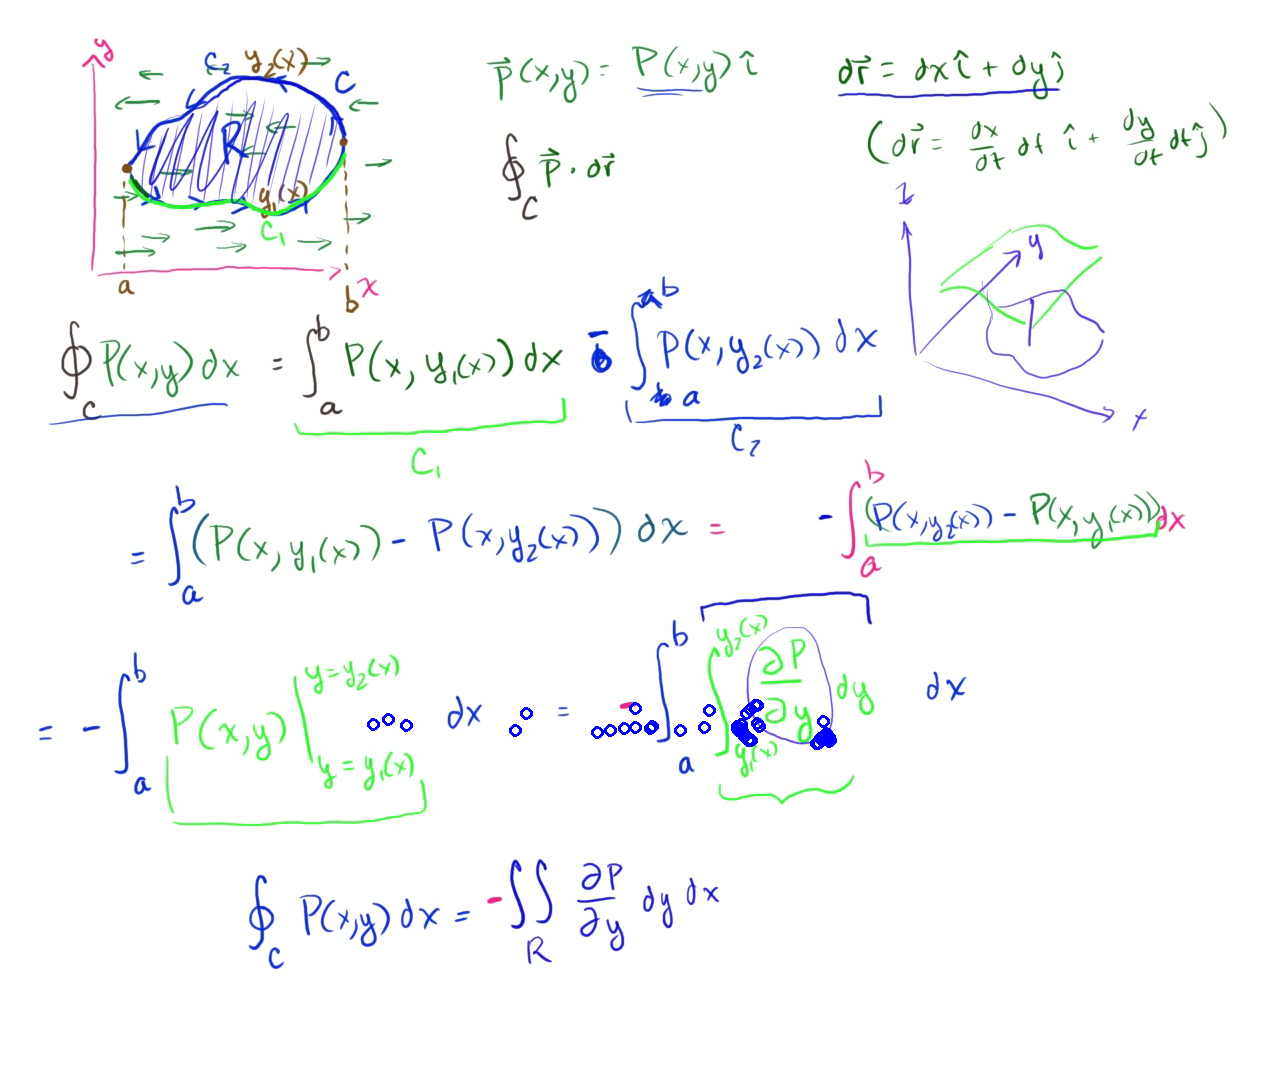 y
C₂ y₂(x)
C
R
y₁(x)
C₁
a
b x
p⃗(x,y) = P(x,y) î
dr⃗ = dx î + dy ĵ
(dr⃗ = dx/dt dt î + dy/dt dt ĵ)
∮_C p⃗ · dr⃗
z
y
x
∮_C P(x,y) dx = ∫_a^b P(x, y₁(x)) dx - ∫_a^b P(x, y₂(x)) dx
C₁
C₂
= ∫_a^b (P(x, y₁(x)) - P(x, y₂(x))) dx = - ∫_a^b (P(x, y₂(x)) - P(x, y₁(x))) dx
= - ∫_a^b P(x,y) |_{y = y₁(x)}^{y = y₂(x)} dx = - ∫_a^b ∫_{y₁(x)}^{y₂(x)} ∂P/∂y dy dx
∮_C P(x,y) dx = - ∬_R ∂P/∂y dy dx